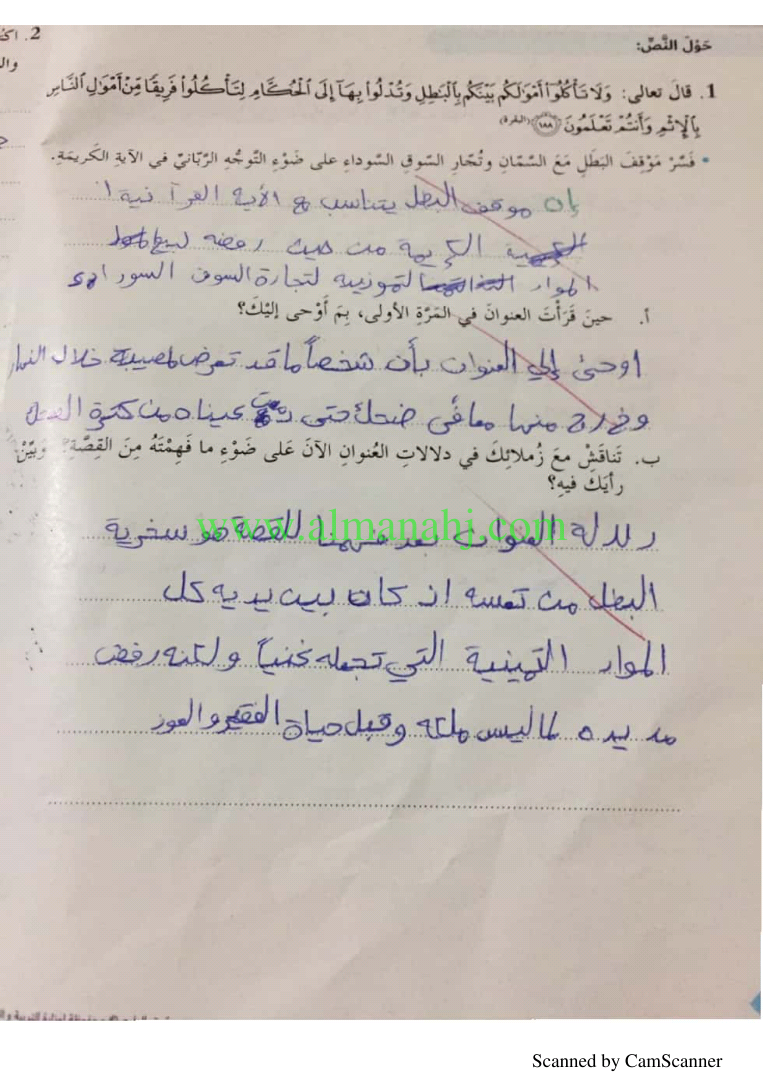 2. اكت
حَوْلَ النَّصِّ:
وال
1. قالَ تعالى: وَلَا تَأْكُلُوٓا۟ أَمْوَٰلَكُم بَيْنَكُم بِٱلْبَٰطِلِ وَتُدْلُوا۟ بِهَآ إِلَى ٱلْحُكَّامِ لِتَأْكُلُوا۟ فَرِيقًا مِّنْ أَمْوَٰلِ ٱلنَّاسِ
بِٱلْإِثْمِ وَأَنتُمْ تَعْلَمُونَ ﴿١٨٨﴾ (البقرة)
• فَسِّرْ مَوْقِفَ البَطَلِ مَعَ السَّمّانِ وتُجّارِ السّوقِ السَّوداءِ على ضَوْءِ التَّوجُّهِ الرَّبّانيّ في الآيةِ الكَريمَةِ.
إن موقف البطل يتناسب مع الأية القرآنية
الكريمة من حيث رفضه لبيع
المواد التموينيه لتجارة السوق السوداء
أ. حينَ قَرَأْتَ العنوانَ في المَرَّةِ الأولى، بِمَ أَوْحى إليْكَ؟
اوحئ إلي العنوان بأن شخصاً ما قد تعرض لمصيبة خلال النهار
وخرج منها معافى ضحك حتى عيناه من كثرة
ب. تَناقَشْ مَعَ زُملائِكَ في دلالاتِ العُنوانِ الآنَ عَلى ضَوْءِ ما فَهِمْتَهُ مِنَ القِصَّةِ؟ وَبَيِّنْ
رأيَكَ فيهِ؟
www.almanahj.com
العنوان بعد فهمنا للقصة هو سخرية
البطل من نفسه اذ كان بين يديه كل
المواد التمينية التي تجعله غنياً ولكنه رفض
مد يده لما ليس ملكه وقبل حياة الفقر والعوز
Scanned by CamScanner